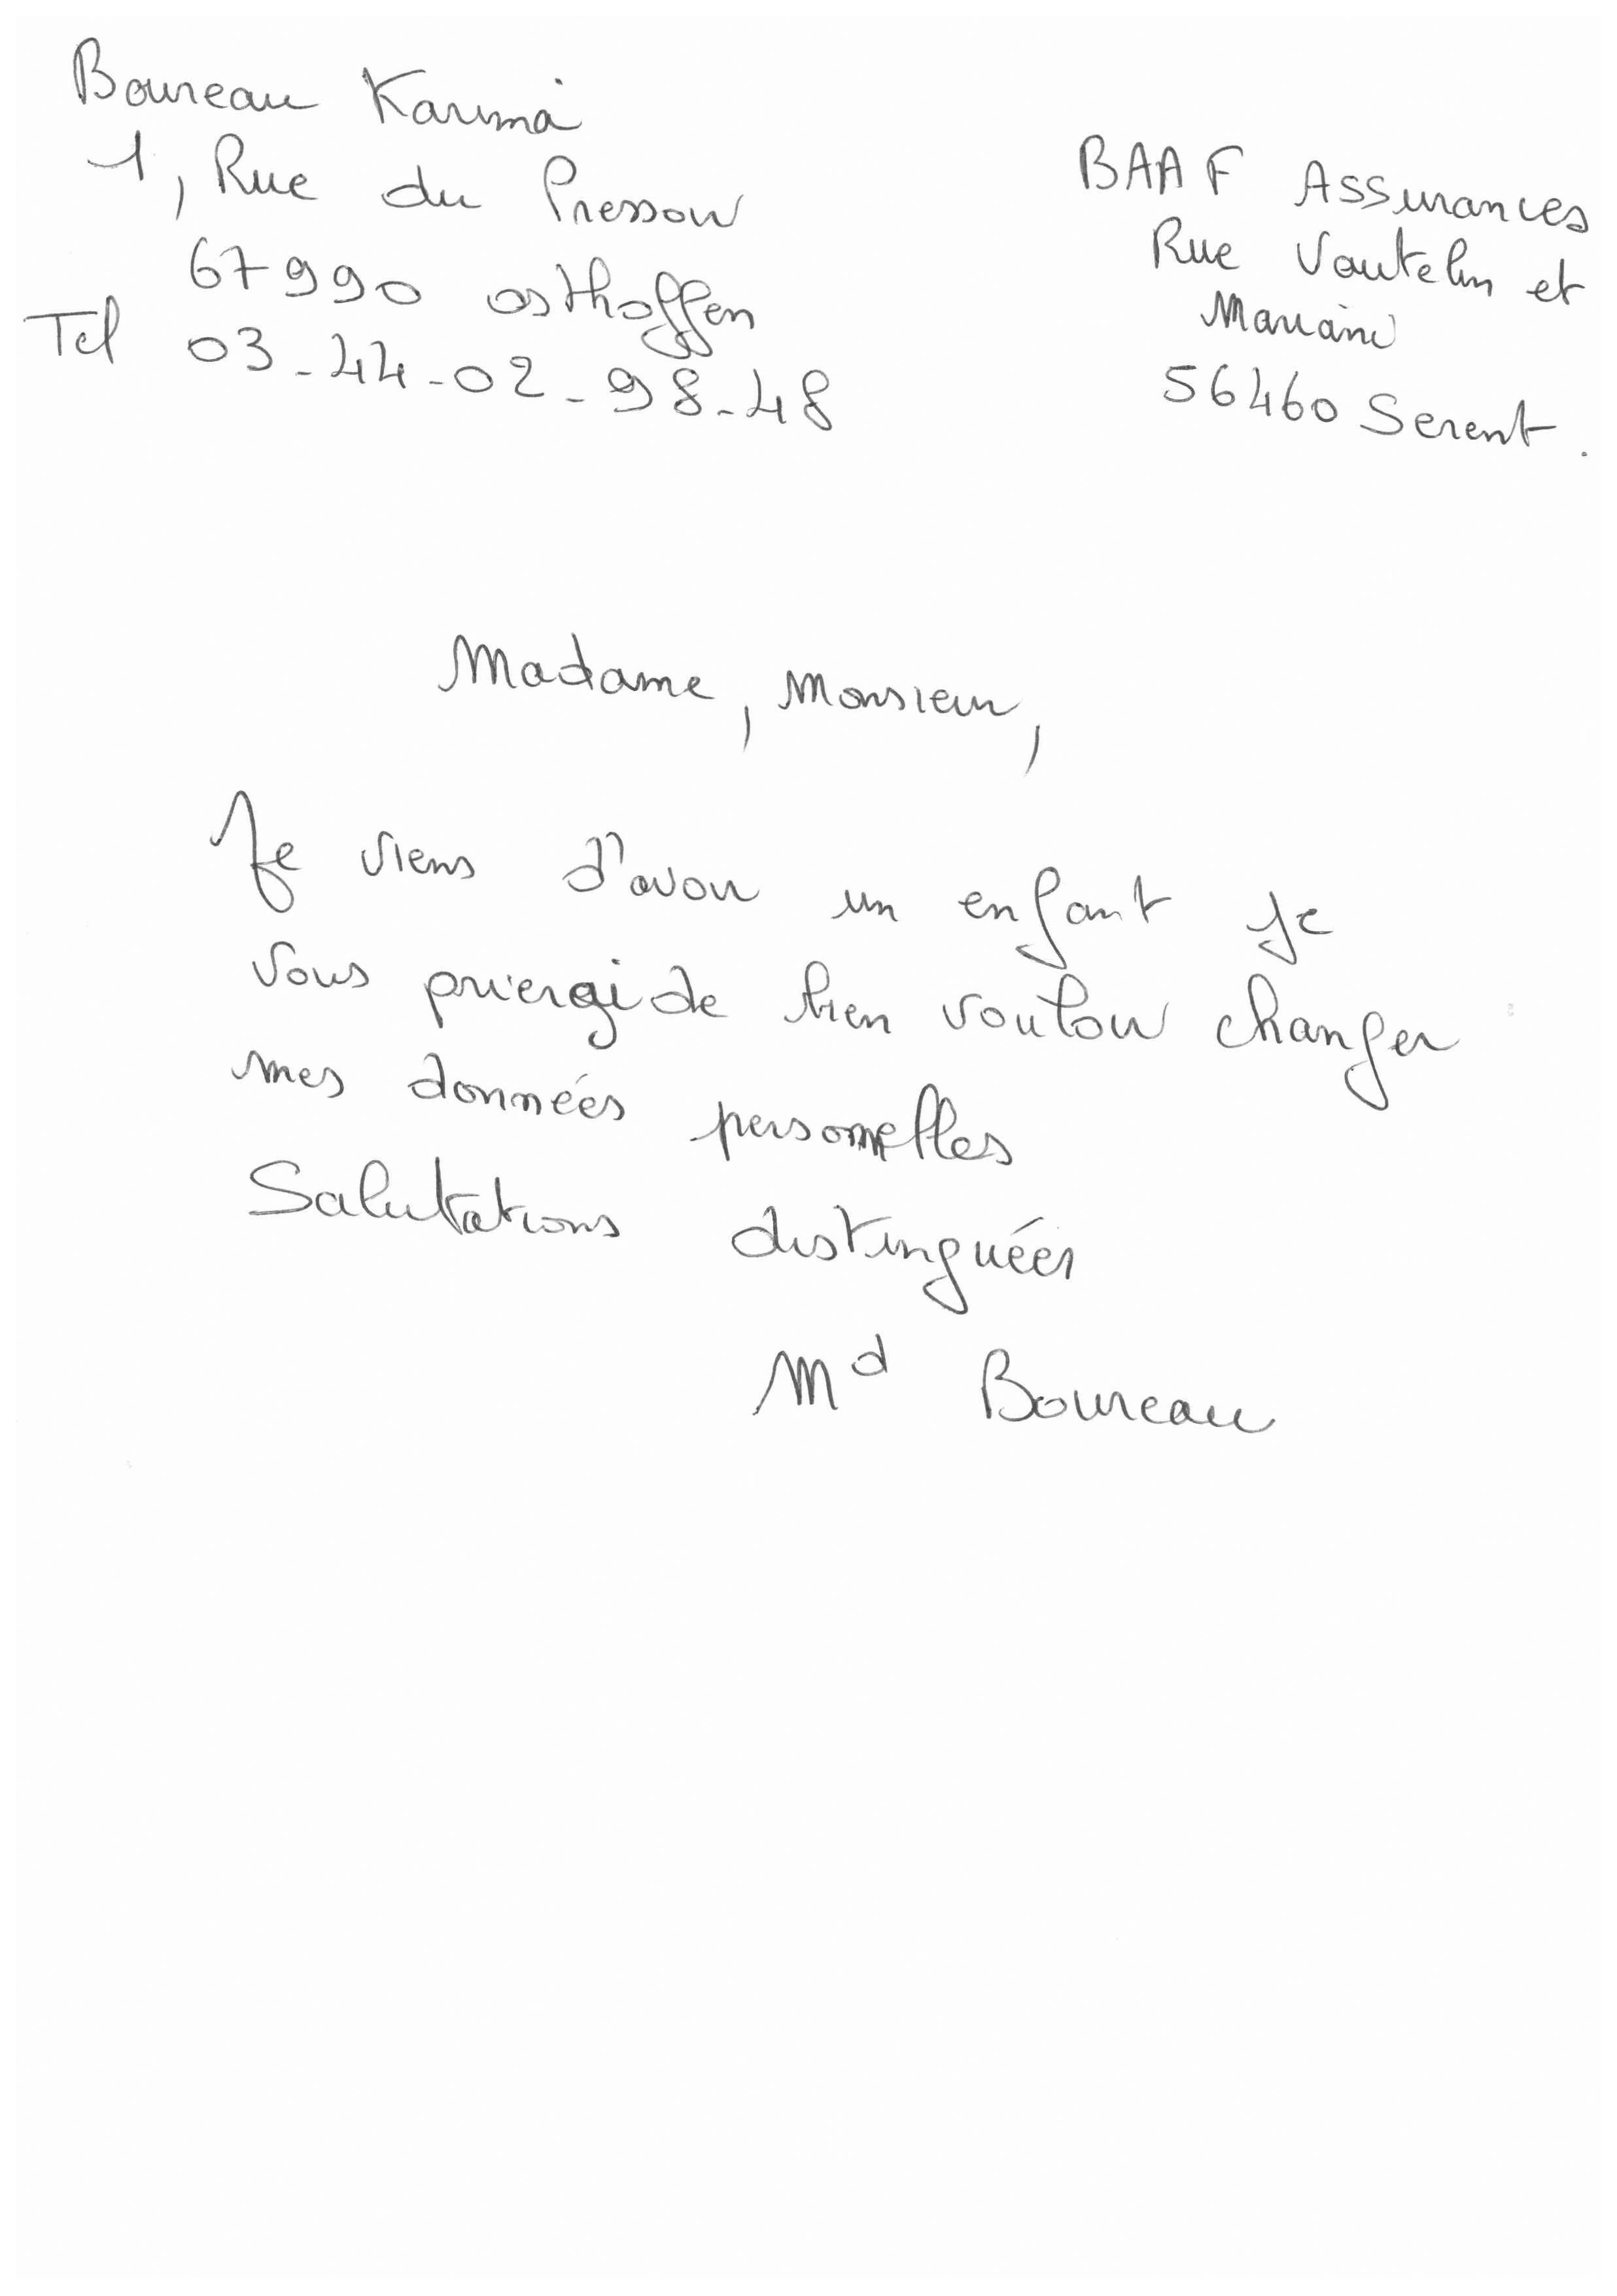 Boureau Karima
1, Rue du Pressoir
67990 osthoffen
Tel 03-44-02-98-48
BAAF Assurances
Rue Vautelin et
Mariani
56460 Serent.
Madame, Monsieur,
Je viens d'avoir un enfant je
vous prierai de bien vouloir changer
mes données personnelles
Salutations distinguées
Md Boureau